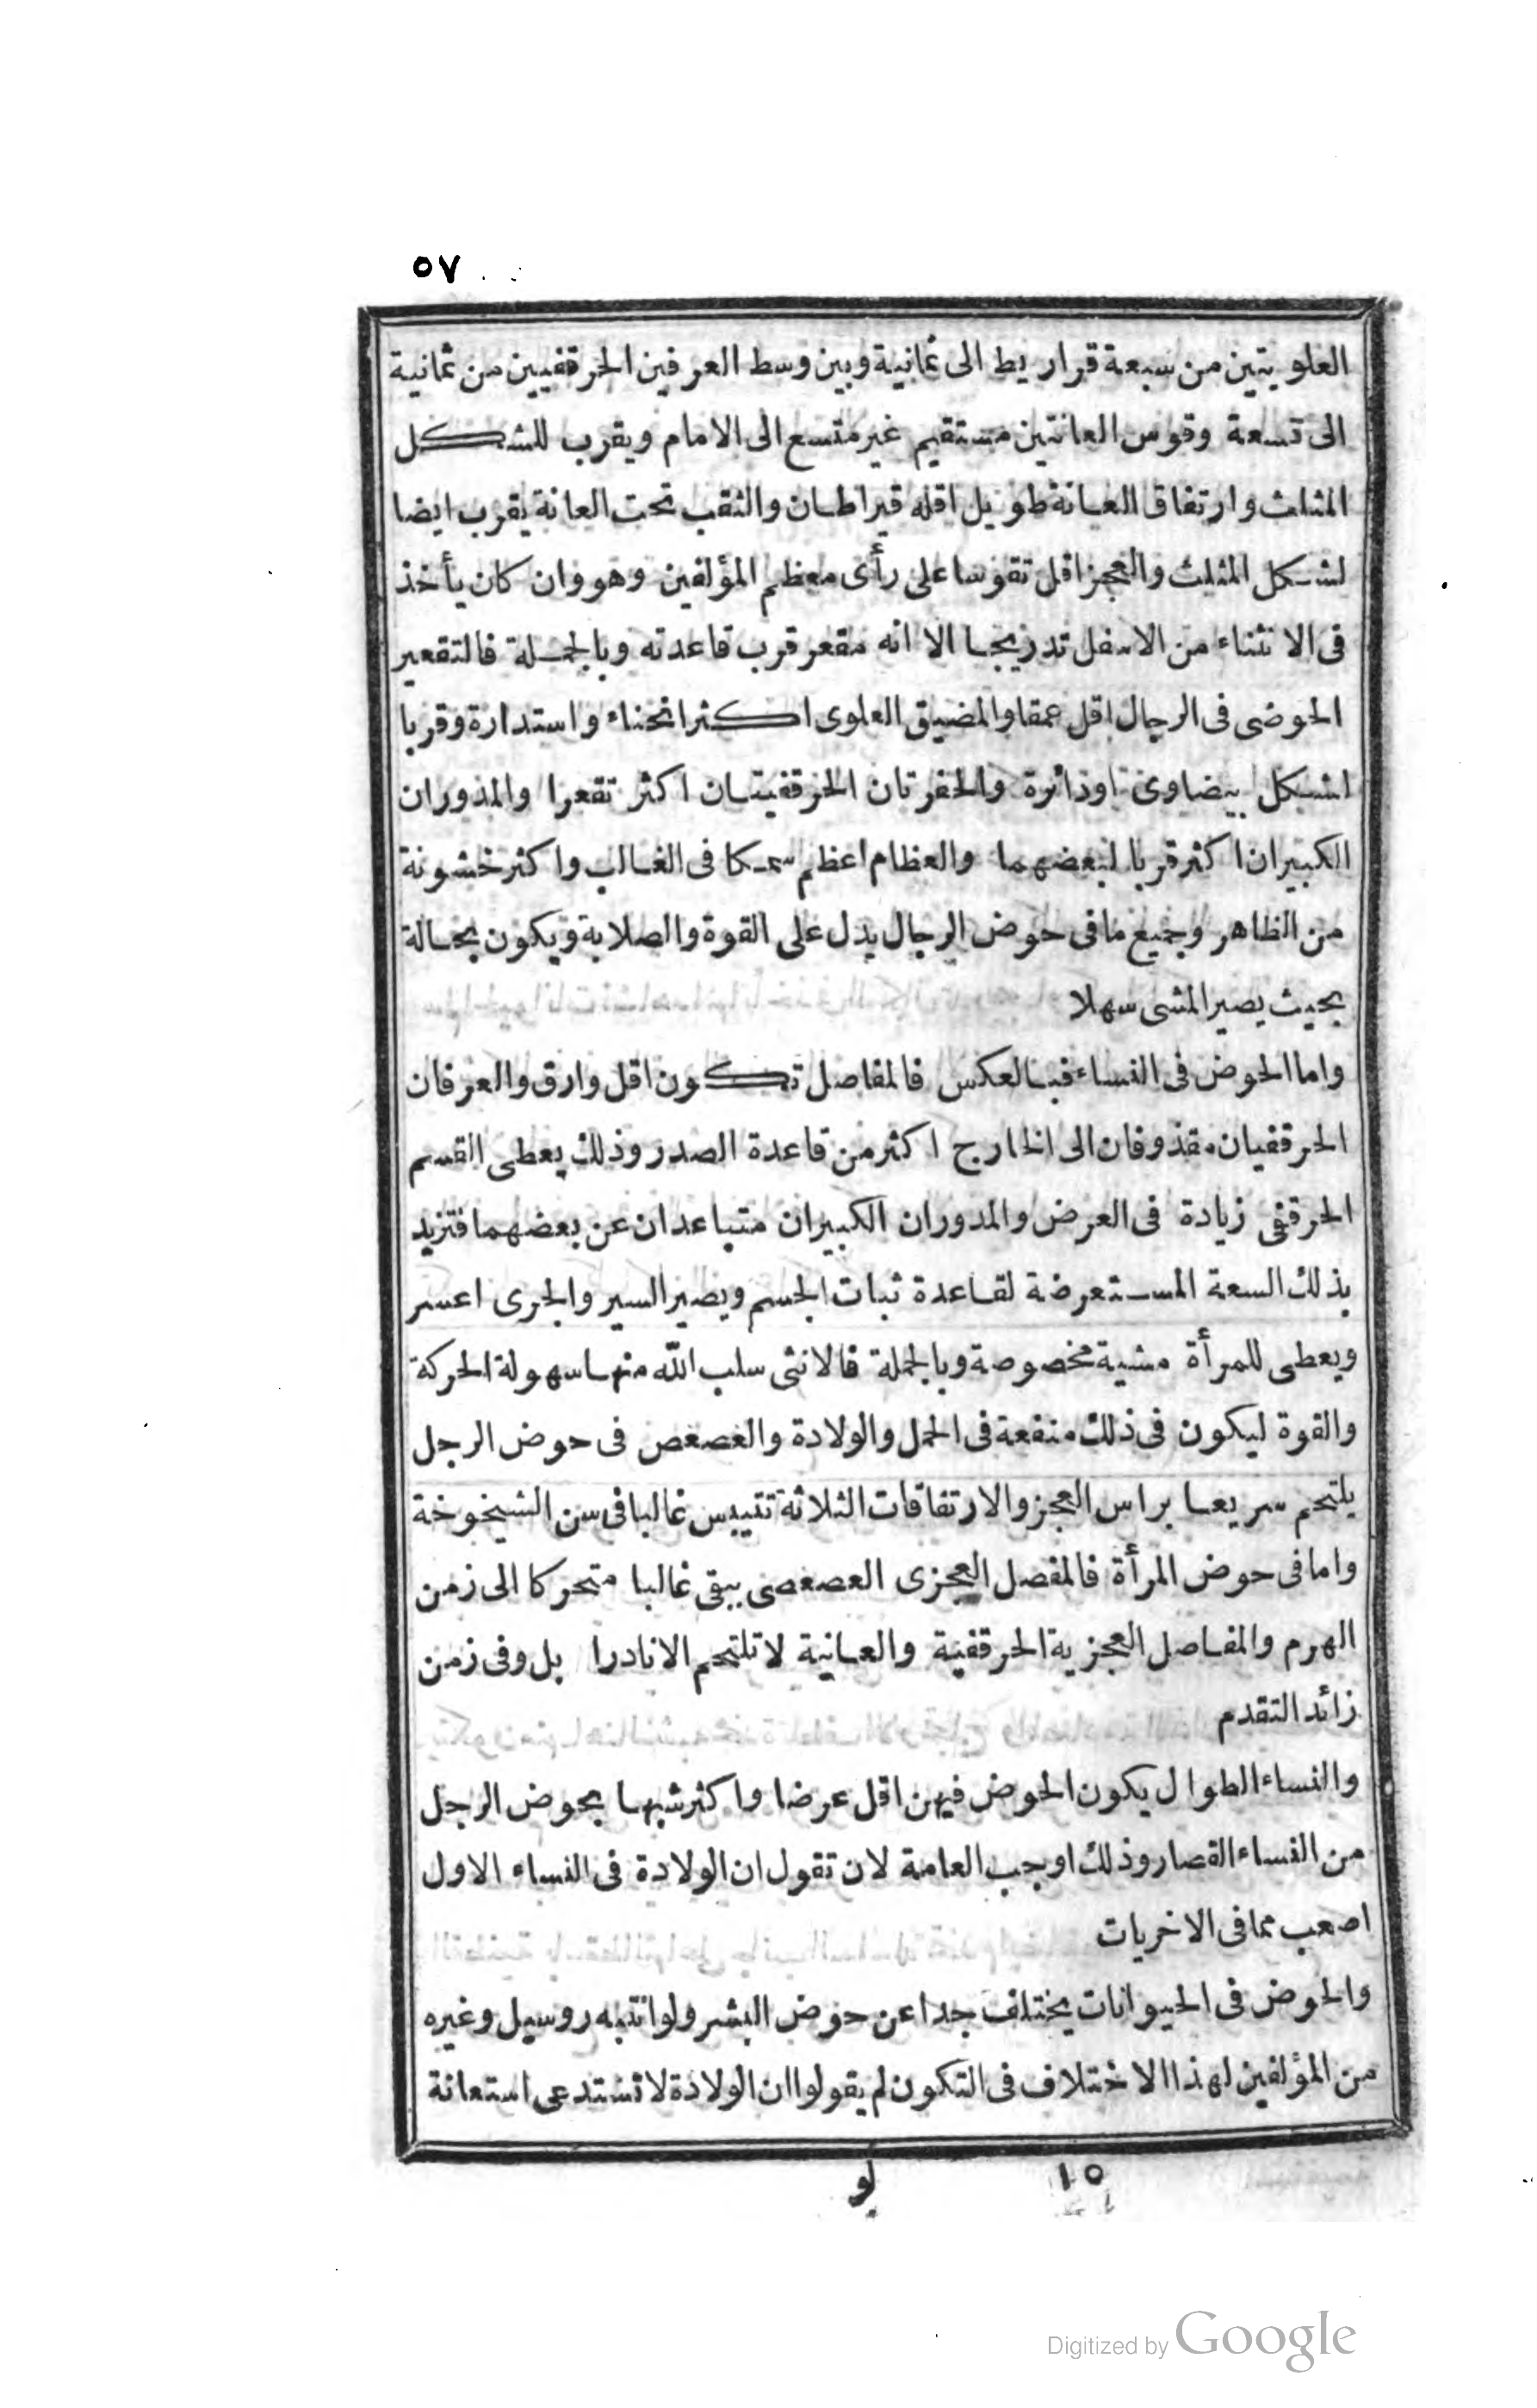 ٥٧
العلويتين من سبعة قراريط الى ثمانية وبين وسط العرفين الحرقفيين من ثمانية
الى تسعة وقوس العانتين مستقيم غير متسع الى الامام ويقرب للشكل
المثلث وارتفاق العانة طويل اقله قيراطان والثقب تحت العانة يقرب ايضا
لشكل المثلث والعجز اقل تقوسا على رأى معظم المؤلفين وهو وان كان يأخذ
فى الانثناء من الاسفل تدريجا الا انه مقعر قرب قاعدته وبالجملة فالتقعير
الحوضى فى الرجال اقل عمقا والمضيق العلوى اكثر انحناء واستدارة وقربا
لشكل بيضاوى اودائرة والحفرتان الحرقفيتان اكثر تقعرا والمدوران
الكبيران اكثر قربا لبعضهما والعظام اعظم سمكا فى الغالب واكثر خشونة
من الظاهر وجميع ما فى حوض الرجال يدل على القوة والصلابة ويكون بحالة
بحيث يصير المشى سهلا
واما الحوض فى النساء فبالعكس فالمفاصل تكون اقل وارق والعرفان
الحرقفيان مقذوفان الى الخارج اكثر من قاعدة الصدر وذلك يعطى القسم
الحرقفى زيادة فى العرض والمدوران الكبيران متباعدان عن بعضهما فتزيد
بذلك السعة المستعرضة لقاعدة ثبات الجسم ويصير السير والجرى اعسر
ويعطى للمرأة مشية مخصوصة وبالجملة فالانثى سلب الله منها سهولة الحركة
والقوة ليكون فى ذلك منفعة فى الحمل والولادة والعصعص فى حوض الرجل
يلتحم سريعا براس العجز والارتفاقات الثلاثة تتيبس غالبا فى سن الشيخوخة
واما فى حوض المرأة فالمفصل العجزى العصعصى يبقى غالبا متحركا الى زمن
الهرم والمفاصل العجزية الحرقفية والعانية لا تلتحم الا نادرا بل وفى زمن
زائد التقدم
والنساء الطوال يكون الحوض فيهن اقل عرضا واكثر شبها بحوض الرجل
من النساء القصار وذلك اوجب العامة لان تقول ان الولادة فى النساء الاول
اصعب مما فى الاخريات
والحوض فى الحيوانات يختلف جدا عن حوض البشر ولو انتبه روسيل وغيره
من المؤلفين لهذا الاختلاف فى التكون لم يقولوا ان الولادة لا تستدعى استعانة
١٥ لو
Digitized by Google